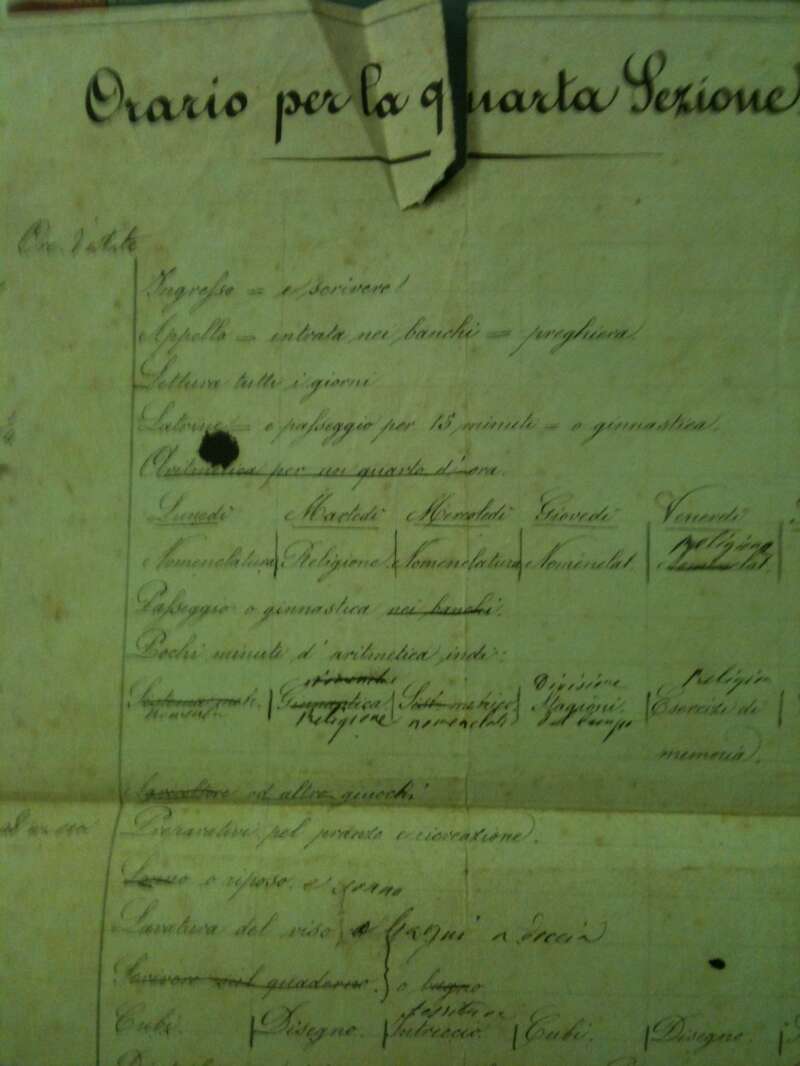 Orario per la quarta Sezione
Ore d'estate
Ingresso = e scrivere!
Appello = entrata nei banchi = preghiera.
Lettura tutti i giorni
Latrine = e passeggio per 15 minuti = o ginnastica.
Aritmetica per un quarto d'ora.
Lunedì Martedì Mercoledì Giovedì Venerdì
religione
Nomenclatura Religione Nomenclatura Nomenclat. Nomenclat.
Passeggio o ginnastica nei banchi.
Pochi minuti d'aritmetica indi:
Divisione religio
Ginnastica Stagioni Esercizi di
religione nomenclat. del tempo
memoria.
od altro giuochi
Preparativi pel pranzo e ricreazione.
Sonno o riposo. e sonno
Lavatura del viso o bagni o doccia
Lavoro sul quaderno. o bagno
tessitura
Cubi. Disegno. Intreccio. Cubi. Disegno.